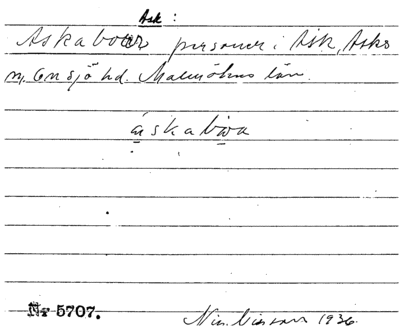 Ask :
Askaboar personer i Ask, Asks
n, Onsjö hd. Malmöhus län.
áskabọwa
Nr 5707.
1936